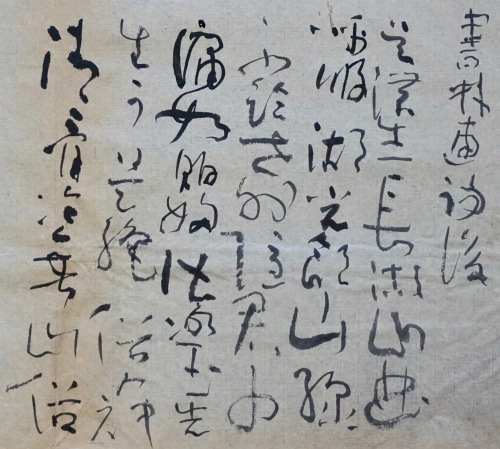 書林逋詩後
吳儂生長湖山曲
呼吸湖光飲山淥
不論世外隱君子
傭奴販婦皆冰玉先
生可是絕俗人神
清骨冷無由俗